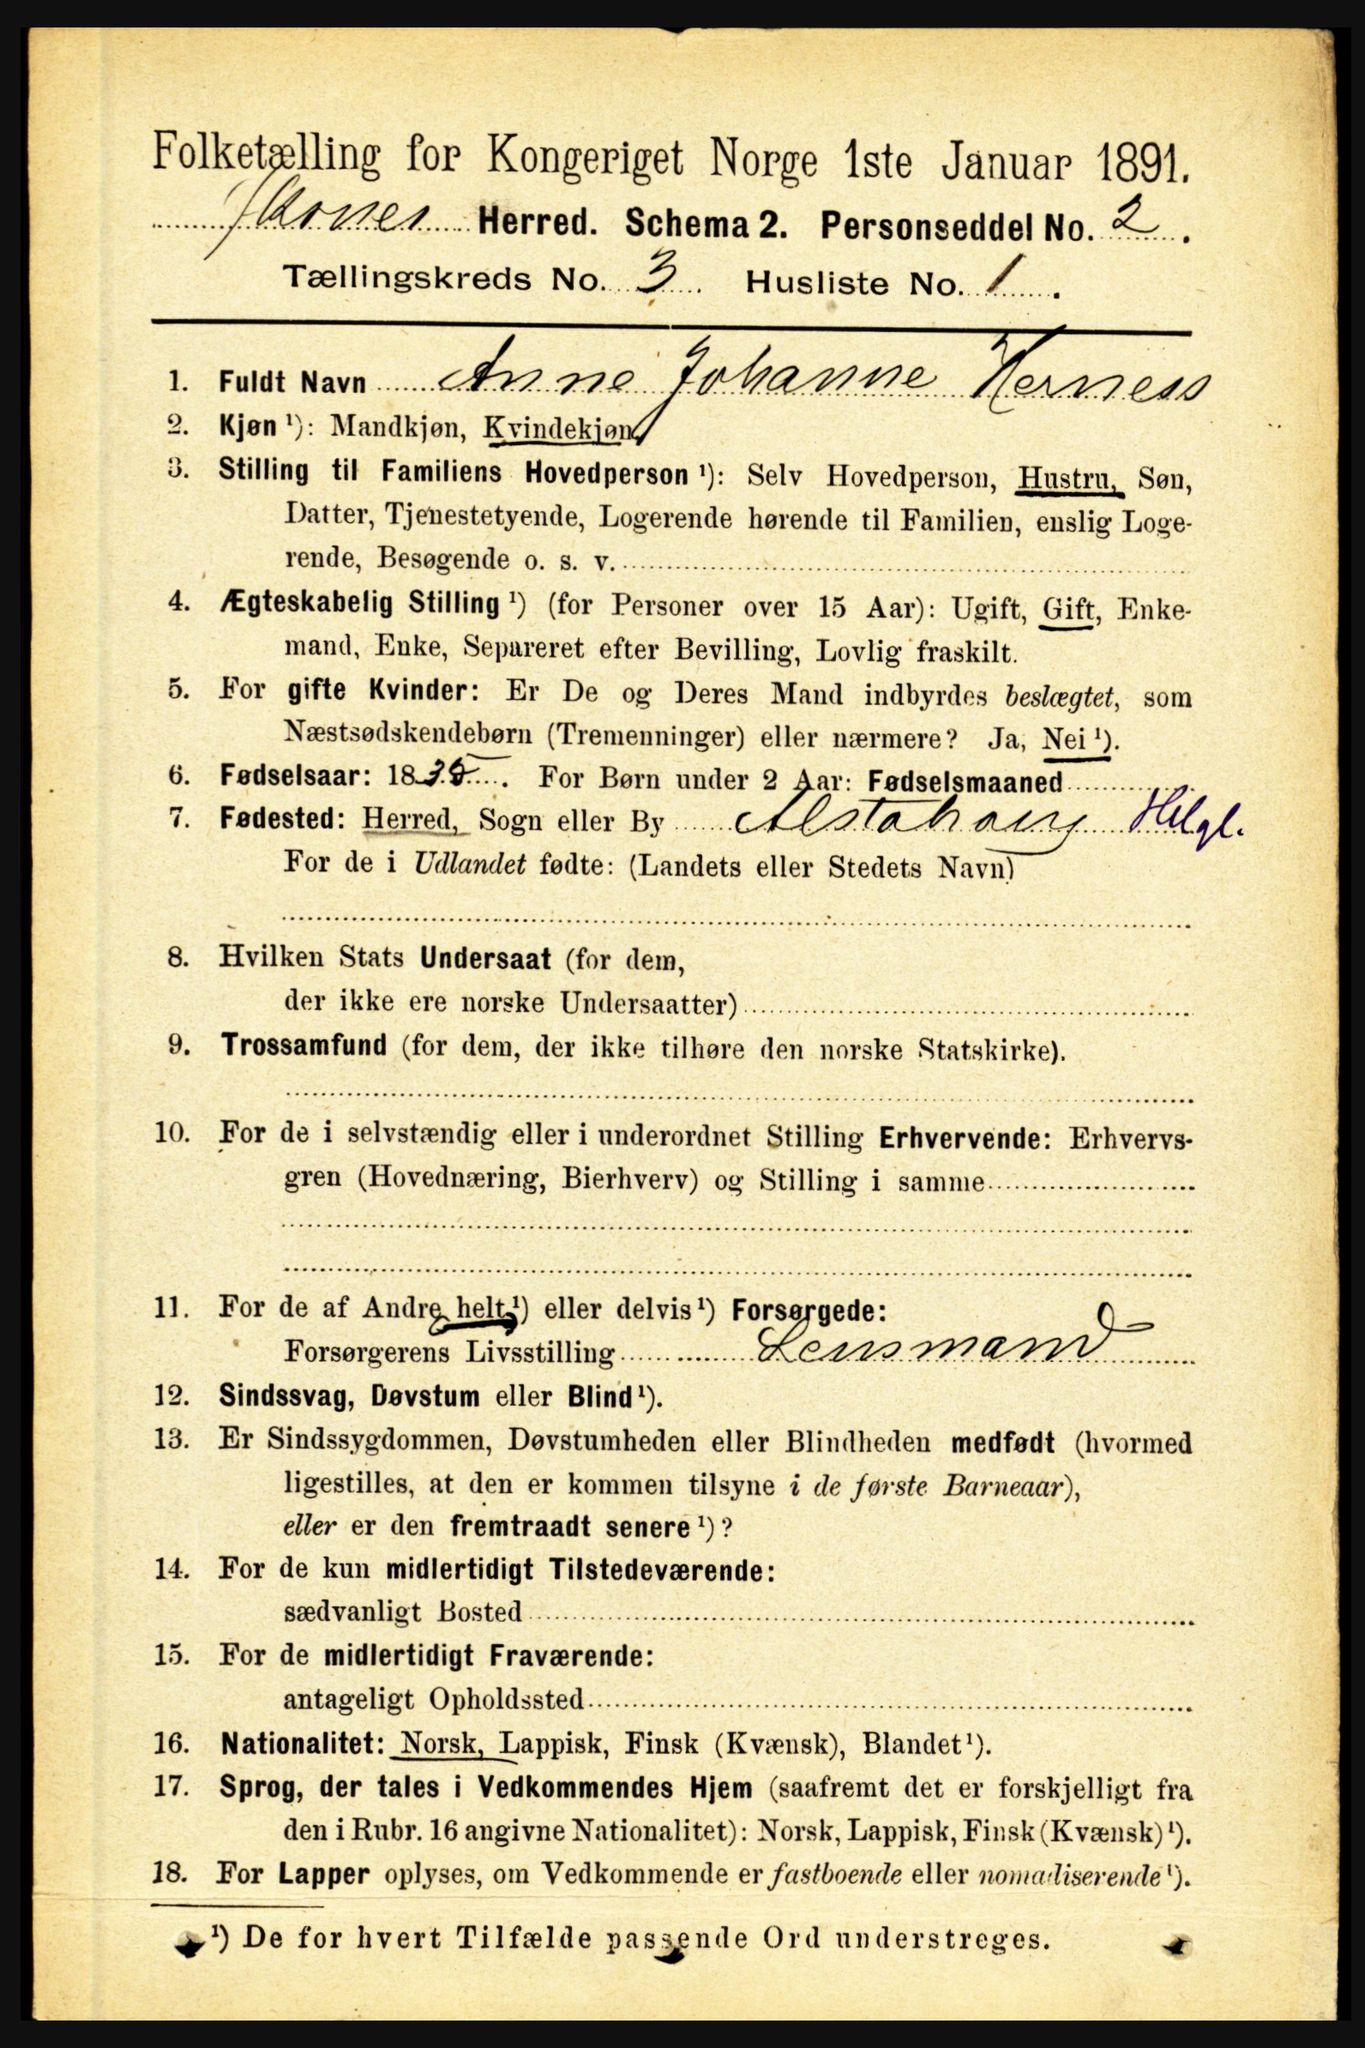 Folketælling for Kongeriget Norge 1ste Januar 1891.
Herred. Schema 2. Personseddel No. 2.
Tællingskreds No. 3. Husliste No. 1.
1. Fuldt Navn Anne Johanne Herness
2. Kjøn ¹): Mandkjøn, Kvindekjøn.
3. Stilling til Familiens Hovedperson ¹): Selv Hovedperson, Hustru, Søn,
Datter, Tjenestetyende, Logerende hørende til Familien, enslig Loge-
rende, Besøgende o. s. v.
4. Ægteskabelig Stilling ¹) (for Personer over 15 Aar): Ugift, Gift, Enke-
mand, Enke, Separeret efter Bevilling, Lovlig fraskilt.
5. For gifte Kvinder: Er De og Deres Mand indbyrdes beslægtet, som
Næstsødskendebørn (Tremenninger) eller nærmere? Ja, Nei ¹).
6. Fødselsaar: 1835. For Børn under 2 Aar: Fødselsmaaned
7. Fødested: Herred, Sogn eller By Alstahoug Helgl.
For de i Udlandet fødte: (Landets eller Stedets Navn)
8. Hvilken Stats Undersaat (for dem,
der ikke ere norske Undersaatter)
9. Trossamfund (for dem, der ikke tilhøre den norske Statskirke).
10. For de i selvstændig eller i underordnet Stilling Erhvervende: Erhvervs-
gren (Hovednæring, Bierhverv) og Stilling i samme
11. For de af Andre helt ¹) eller delvis ¹) Forsørgede:
Forsørgerens Livsstilling Lensmand
12. Sindssvag, Døvstum eller Blind ¹).
13. Er Sindssygdommen, Døvstumheden eller Blindheden medfødt (hvormed
ligestilles, at den er kommen tilsyne i de første Barneaar),
eller er den fremtraadt senere ¹)?
14. For de kun midlertidigt Tilstedeværende:
sædvanligt Bosted
15. For de midlertidigt Fraværende:
antageligt Opholdssted
16. Nationalitet: Norsk, Lappisk, Finsk (Kvænsk), Blandet ¹).
17. Sprog, der tales i Vedkommendes Hjem (saafremt det er forskjelligt fra
den i Rubr. 16 angivne Nationalitet): Norsk, Lappisk, Finsk (Kvænsk) ¹).
18. For Lapper oplyses, om Vedkommende er fastboende eller nomadiserende ¹).
¹) De for hvert Tilfælde passende Ord understreges.